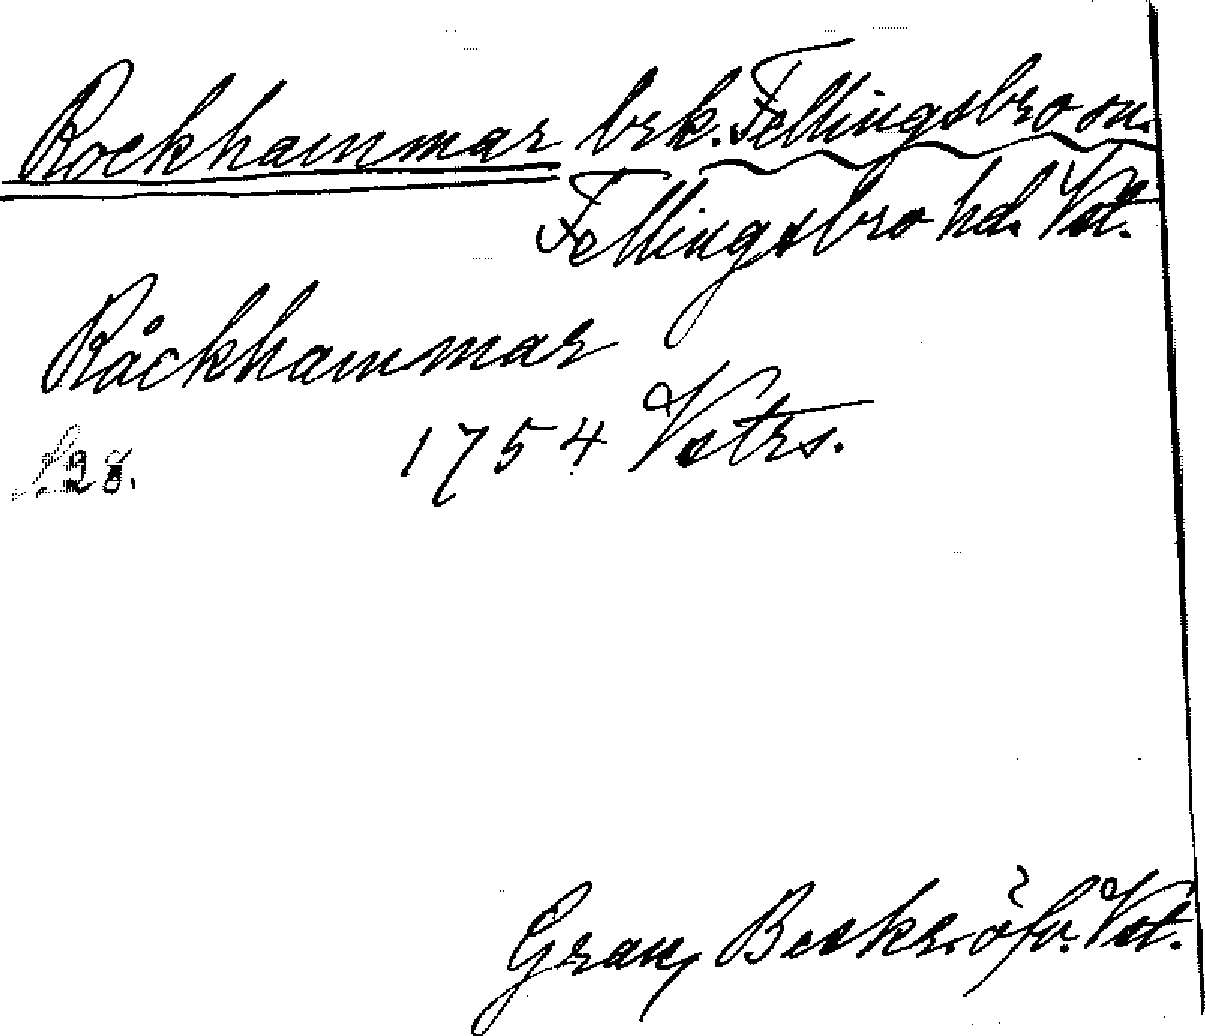 Rockhammar brk. Fellingsbro sn.
Fellingsbro hd. Vstl.
Råckhammar
1754 Vstrs.
s. 28.
Grau, Beskr. öfv. Vstl.